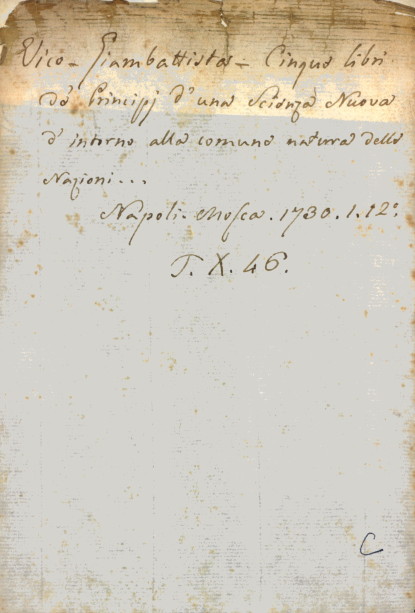 Vico - Giambattista - Cinque libri
de' Principj d' una Scienza Nuova
d' intorno alla comune natura delle
Nazioni...
Napoli. Mosca. 1730. 1. 12°
T. X. 46.
C